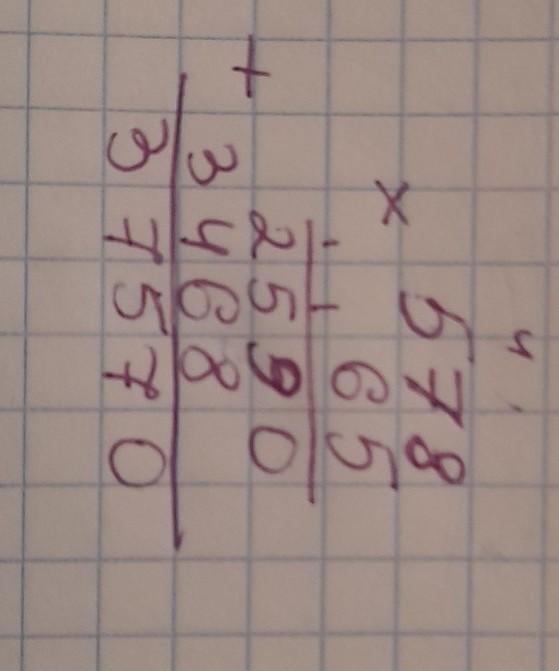 4
× 578
65
1 1
+ 2590
3468
37570